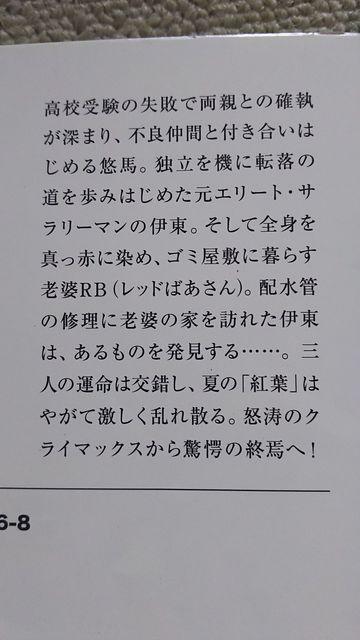 高校受験の失敗で両親との確執
が深まり、不良仲間と付き合いは
じめる悠馬。独立を機に転落の
道を歩みはじめた元エリート・サ
ラリーマンの伊東。そして全身を
真っ赤に染め、ゴミ屋敷に暮らす
老婆RB(レッドばあさん)。配水管
の修理に老婆の家を訪れた伊東
は、あるものを発見する……。三
人の運命は交錯し、夏の「紅葉」は
やがて激しく乱れ散る。怒涛のク
ライマックスから驚愕の終焉へ!
6-8